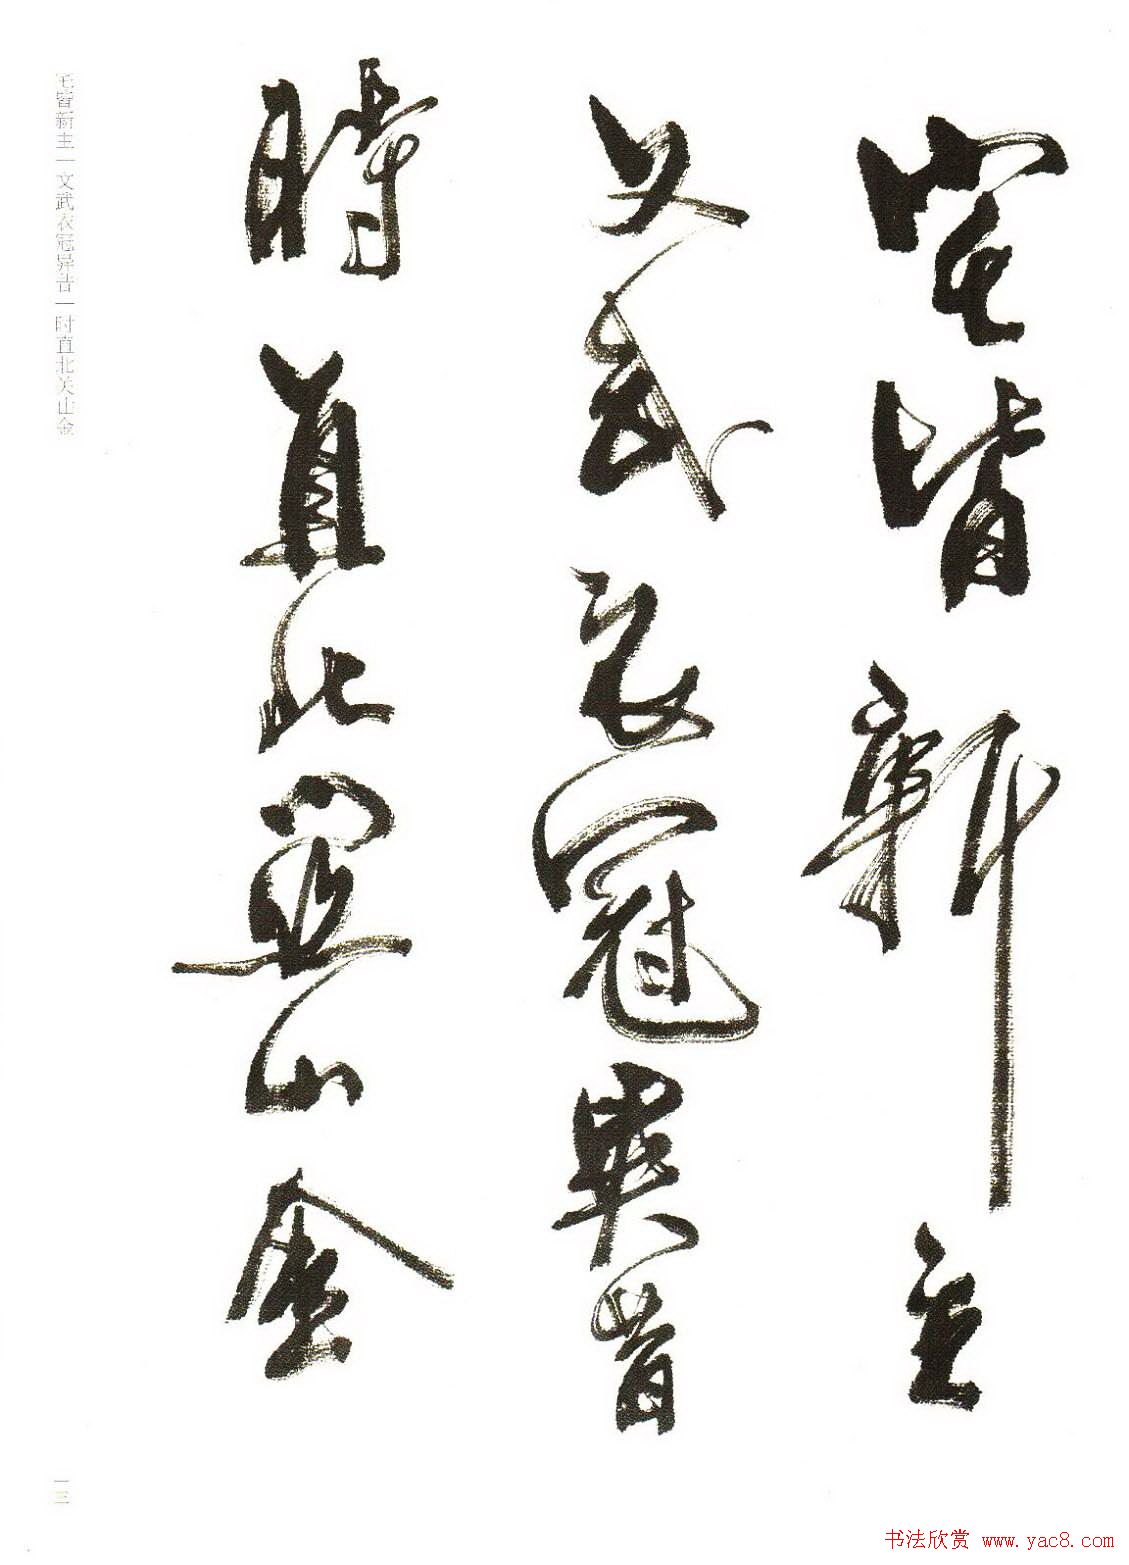 宅皆新主
文武衣冠異昔
時直北關山金
宅皆新主一文武衣冠异昔一时直北关山金
一三
书法欣赏 www.yac8.com